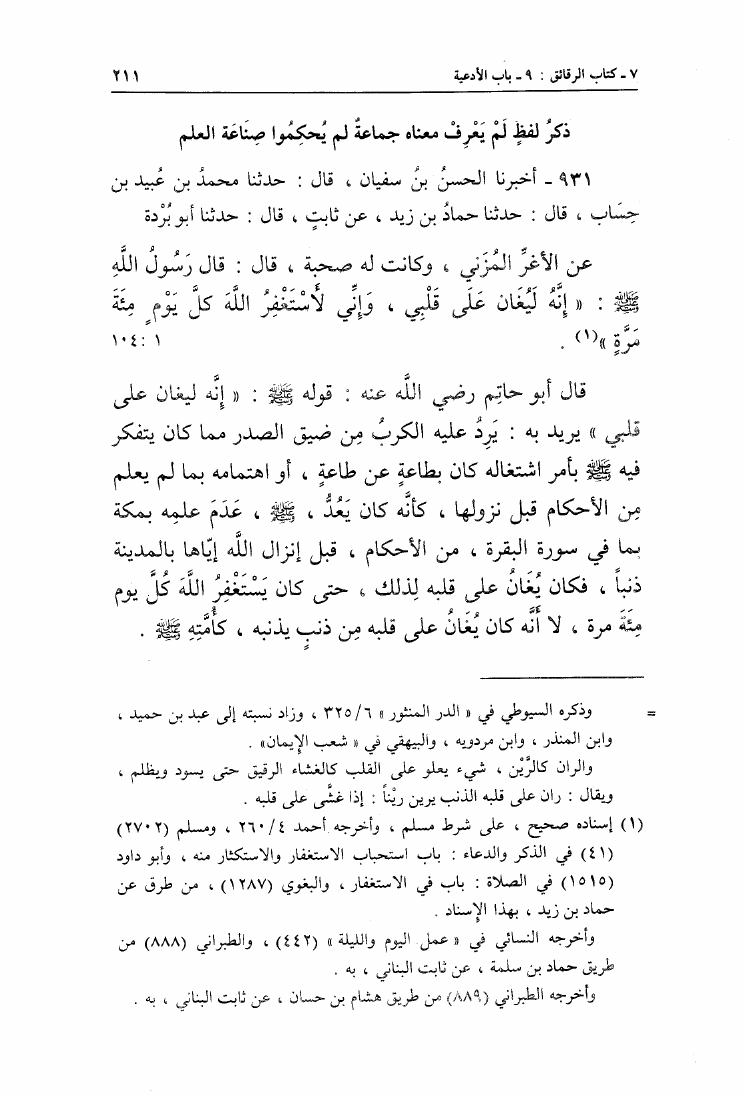 ٧ - كتاب الرقائق : ٩ - باب الأدعية ٢١١
ذكرُ لفظٍ لَمْ يَعْرِفْ معناه جماعةٌ لم يُحكِمُوا صِنَاعَة العلم
٩٣١ - أخبرنا الحسنُ بنُ سفيان ، قال : حدثنا محمدُ بن عُبيد بن
حِسَاب ، قال : حدثنا حمادُ بن زيد ، عن ثابتٍ ، قال : حدثنا أبو بُرْدة
عن الأغرِّ المُزَني ، وكانت له صحبة ، قال : قال رَسُولُ اللَّهِ
ﷺ : « إِنَّهُ لَيُغَان عَلَى قَلْبِي ، وَإِنِّي لَأَسْتَغْفِرُ اللَّهَ كلَّ يَوْمٍ مِئَةَ
مَرَّةٍ »(١) . ١ :١٠٤
قال أبو حاتِم رضي اللَّه عنه : قوله ﷺ : « إِنَّه ليغان على
قلبي » يريد به : يَرِدُ عليه الكربُ مِن ضيق الصدر مما كان يتفكر
فيه ﷺ بأمر اشتغاله كان بطاعةٍ عن طاعةٍ ، أو اهتمامه بما لم يعلم
مِن الأحكام قبل نزولها ، كأنَّه كان يَعُدُّ ، ﷺ ، عَدَمَ علمِه بمكة
بما في سورة البقرة ، من الأحكام ، قبل إنزال اللَّه إيَّاها بالمدينة
ذنباً ، فكان يُغَانُ على قلبه لِذلك ، حتى كان يَسْتَغْفِرُ اللَّهَ كُلَّ يوم
مِئَةَ مرة ، لا أَنَّه كان يُغَانُ على قلبه مِن ذنبٍ يذنبه ، كأُمَّتِهِ ﷺ .
= وذكره السيوطي في « الدر المنثور » ٣٢٥/٦ ، وزاد نسبته إلى عبد بن حميد ،
وابن المنذر ، وابن مردويه ، والبيهقي في « شعب الإيمان» .
والران كالرَّيْن ، شيء يعلو على القلب كالغشاء الرقيق حتى يسود ويظلم ،
ويقال : ران على قلبه الذنب يرين ريْناً : إذا غشَّى على قلبه .
(١) إسناده صحيح ، على شرط مسلم ، وأخرجه أحمد ٢٦٠/٤ ، ومسلم (٢٧٠٢)
(٤١) في الذكر والدعاء : باب استحباب الاستغفار والاستكثار منه ، وأبو داود
(١٥١٥) في الصلاة : باب في الاستغفار ، والبغوي (١٢٨٧) ، من طرق عن
حماد بن زيد ، بهذا الإسناد .
وأخرجه النسائي في « عمل اليوم والليلة » (٤٤٢) ، والطبراني (٨٨٨) من
طريق حماد بن سلمة ، عن ثابت البناني ، به .
وأخرجه الطبراني (٨٨٩) من طريق هشام بن حسان ، عن ثابت البناني ، به .